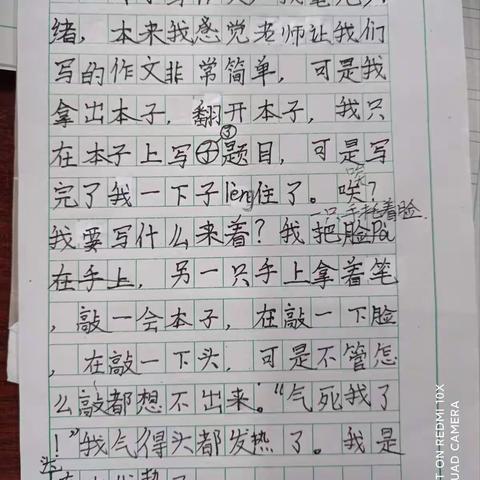 绪，本来我感觉老师让我们
写的作文非常简单，可是我
拿出本子，翻开本子，我只
在本子上写了③题目，可是写
完了我一下子lèng住了。唉？
一只手托着脸
我要写什么来着？我把脸
在手上，另一只手上拿着笔
，敲一会本子，在敲一下脸
，在敲一下头，可是不管怎
么敲都想不出来。“气死我了
！”我气得头都发热了。我是
SHOT ON REDMI 10X
QUAD CAMERA